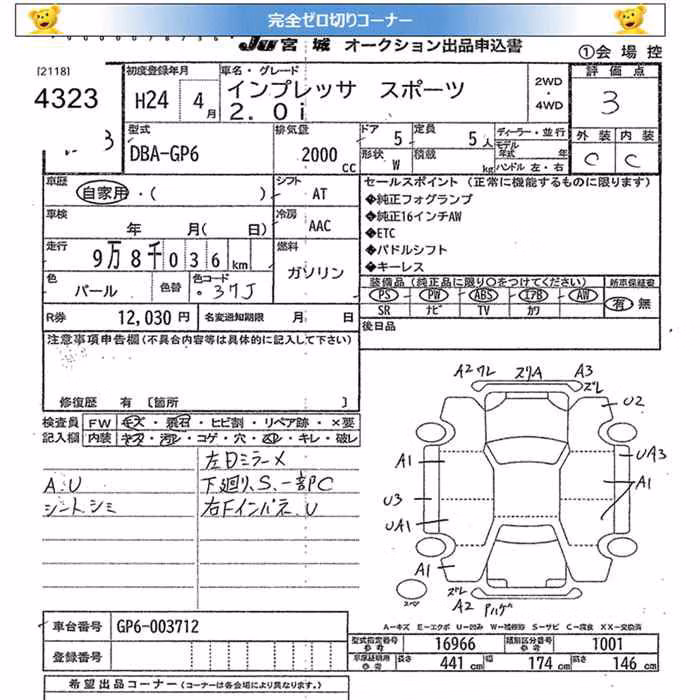 完全ゼロ切りコーナー
JU 宮 城 オークション出品申込書
①会 場 控
[2118]
4323
初度登録年月
H24 4月
車名・グレード
インプレッサ スポーツ
2.0i
2WD
・
4WD
評 価 点
3
型式
DBA-GP6
排気量
2000 CC
ドア 5
定員 5 人
形状 W
積載 kg
ディーラー・並行
モデル年式 年
ハンドル 左・右
外 装 内 装
C C
車歴
自家用・( )
シフト AT
車検
年 月( 日)
冷房 AAC
走行
9万8千036km
燃料
ガソリン
色
パール
色替
色コード
37J
R券 12,030円
名変通知期限 月 日
セールスポイント (正常に機能するものに限ります)
◆純正フォグランプ
◆純正16インチAW
◆ETC
◆パドルシフト
◆キーレス
装備品 (純正品に限り〇をつけてください)
新車保証書
PS PW ABS エアB AW
SR ナビ TV カワ
有 無
後日品
注意事項申告欄(不具合内容等は具体的に記入して下さい)
修復歴 有 〔箇所 〕
検査員 FW キズ・飛石・ヒビ割・リペア跡・×要
記入欄 内装 キズ・汚れ・コゲ・穴・凹・キレ・破レ
左日ミラーメ
A.U
下廻り、S、一部C
シートシミ
右Fインパネ、U
A2 ワレ ズリA A3
ズレ
U2
A1
UA3
U3
A1
UA1
A1
ズレ
A2 Pハゲ
スペア
A−キズ E−エクボ U−凹み W−補修跡 S−サビ C−腐食 XX−交換済
車台番号 GP6-003712
登録番号
型式指定番号 参考 16966
類別区分番号 参考 1001
車庫証明用 参考 長さ 441cm 幅 174cm 高さ 146cm
希望出品コーナー (コーナーは各会場により異なります。)